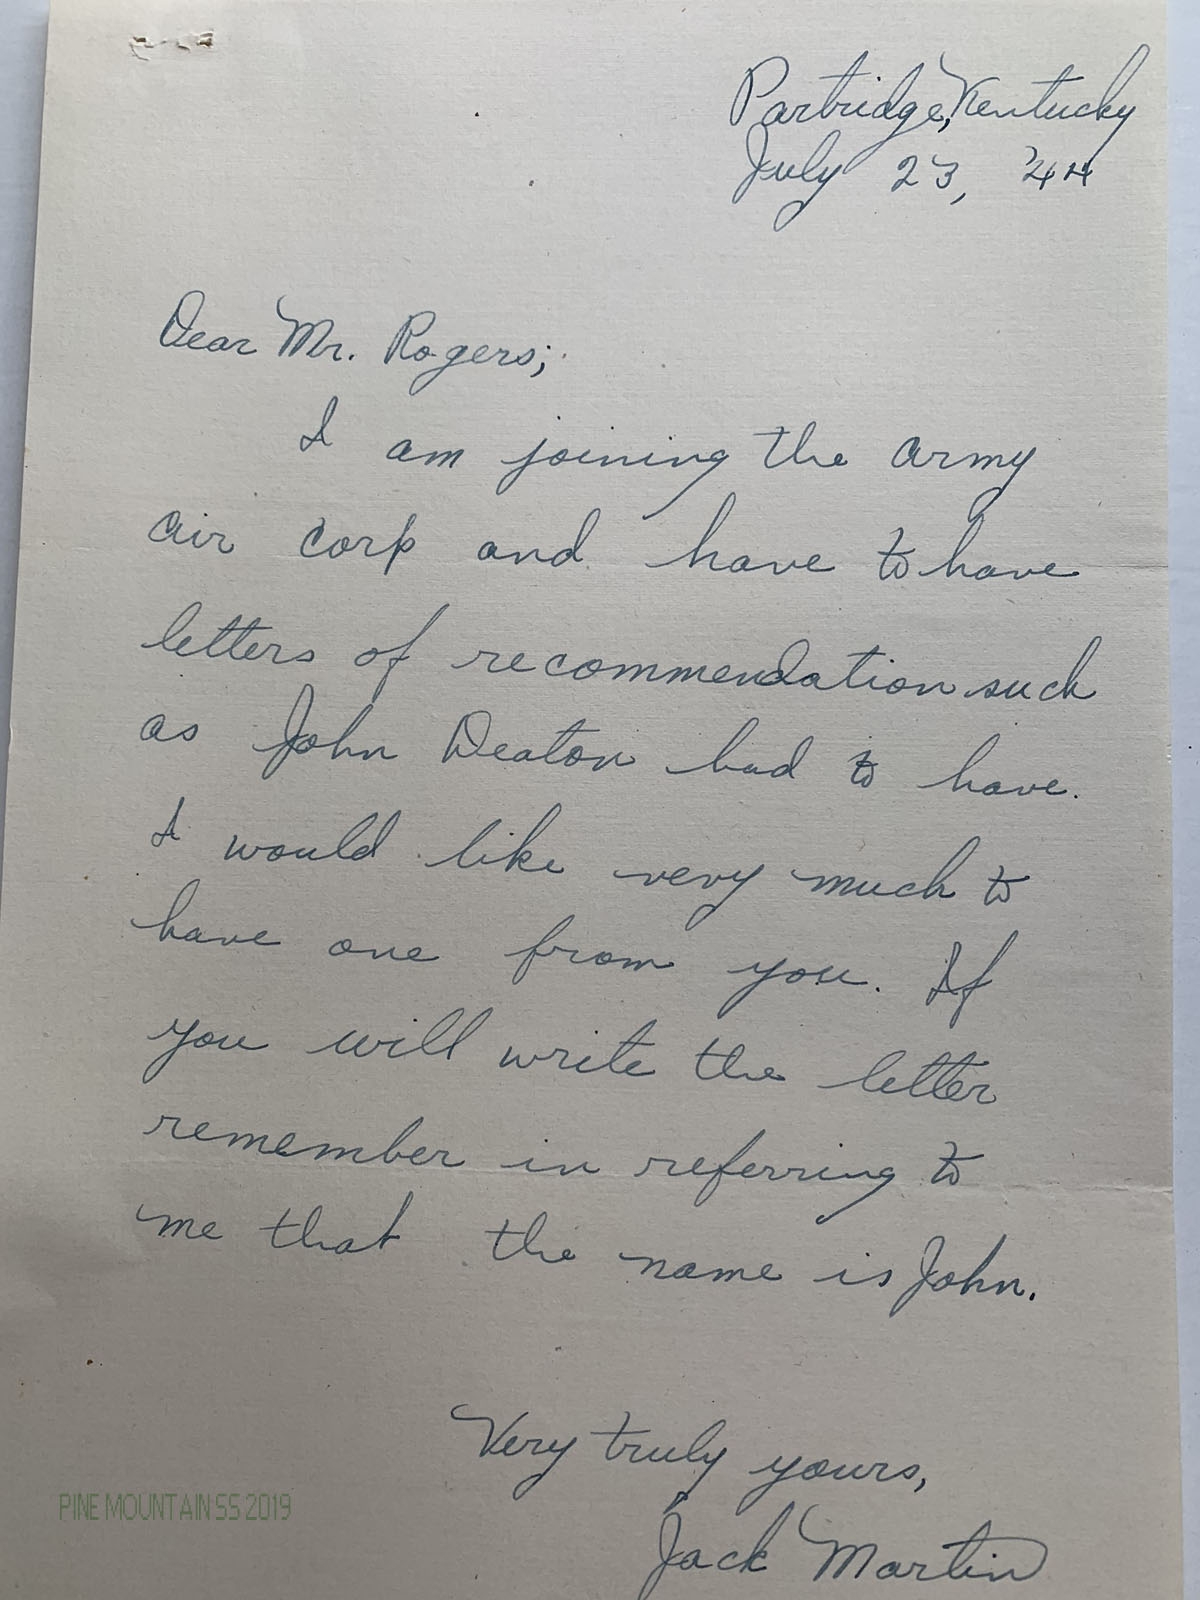 Partridge, Kentucky
July 23, 44
Dear Mr. Rogers;
I am joining the army
air corp and have to have
letters of recommendation such
as John Deaton had to have.
I would like very much to
have one from you. If
you will write the letter
remember in referring to
me that the name is John.
Very truly yours,
Jack Martin
PINE MOUNTAIN SS 2019